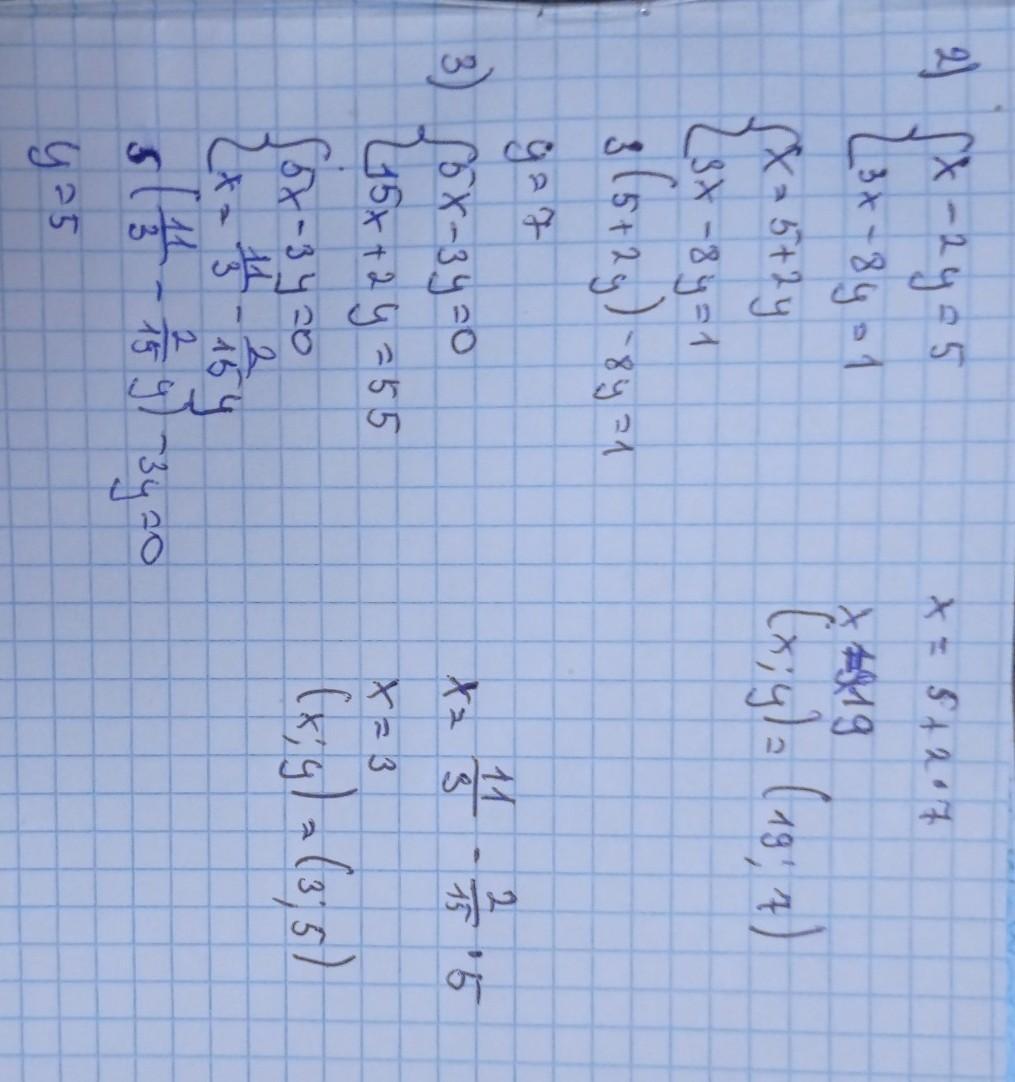 2) { x - 2y = 5
{ 3x - 8y = 1
{ x = 5 + 2y
{ 3x - 8y = 1
3(5 + 2y) - 8y = 1
y = 7
x = 5 + 2 · 7
x = 19
(x; y) = (19; 7)
3) { 5x - 3y = 0
{ 15x + 2y = 55
{ 5x - 3y = 0
{ x = 11/3 - 2/15 y
5(11/3 - 2/15 y) - 3y = 0
y = 5
x = 11/3 - 2/15 · 5
x = 3
(x; y) = (3; 5)